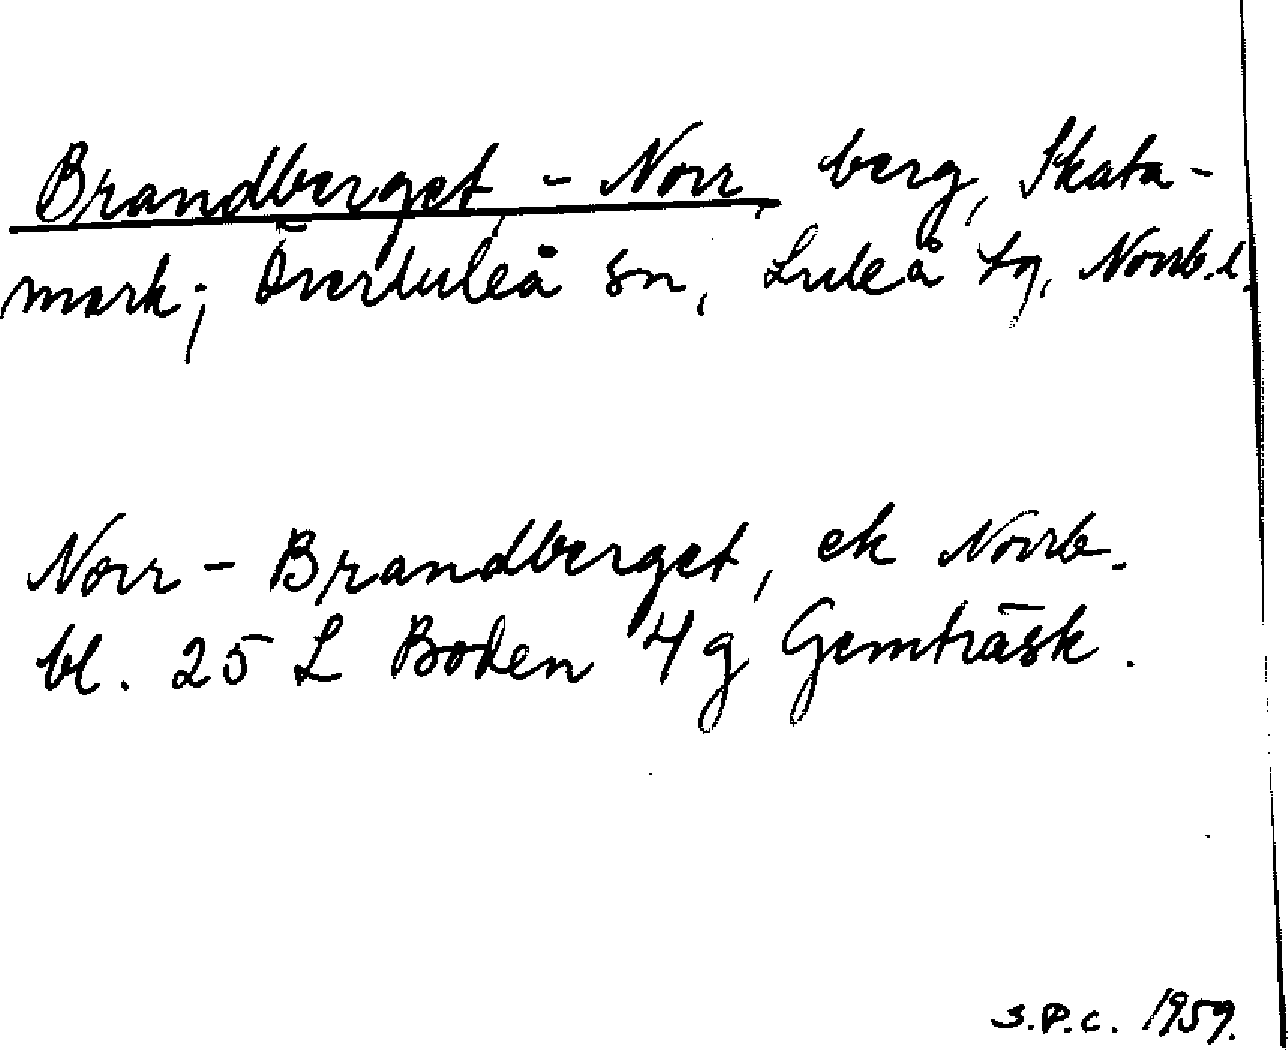 Brandberget, - Norr, berg, Skata-
mark; Överluleå sn, Luleå tg, Norrb. l.
Norr-Brandberget, ek Norrb.
bl. 25 L Boden 4 g Gemträsk.
S.P.C. 1959.